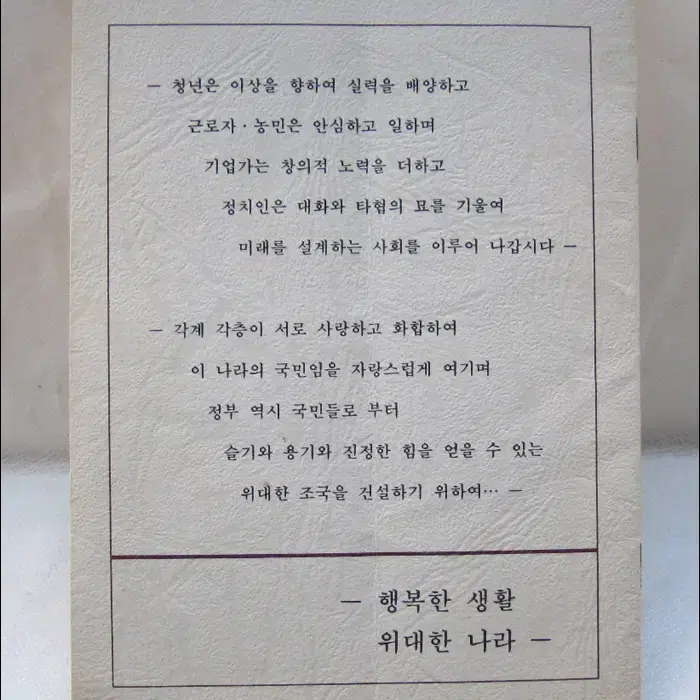 — 청년은 이상을 향하여 실력을 배양하고
근로자 · 농민은 안심하고 일하며
기업가는 창의적 노력을 더하고
정치인은 대화와 타협의 묘를 기울여
미래를 설계하는 사회를 이루어 나갑시다 —
— 각계 각층이 서로 사랑하고 화합하여
이 나라의 국민임을 자랑스럽게 여기며
정부 역시 국민들로 부터
슬기와 용기와 진정한 힘을 얻을 수 있는
위대한 조국을 건설하기 위하여… —
— 행복한 생활
위대한 나라 —